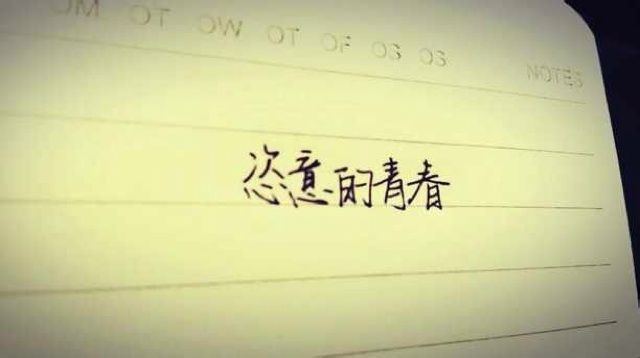 OM OT OW OT OF OS OS NOTES
恣意的青春